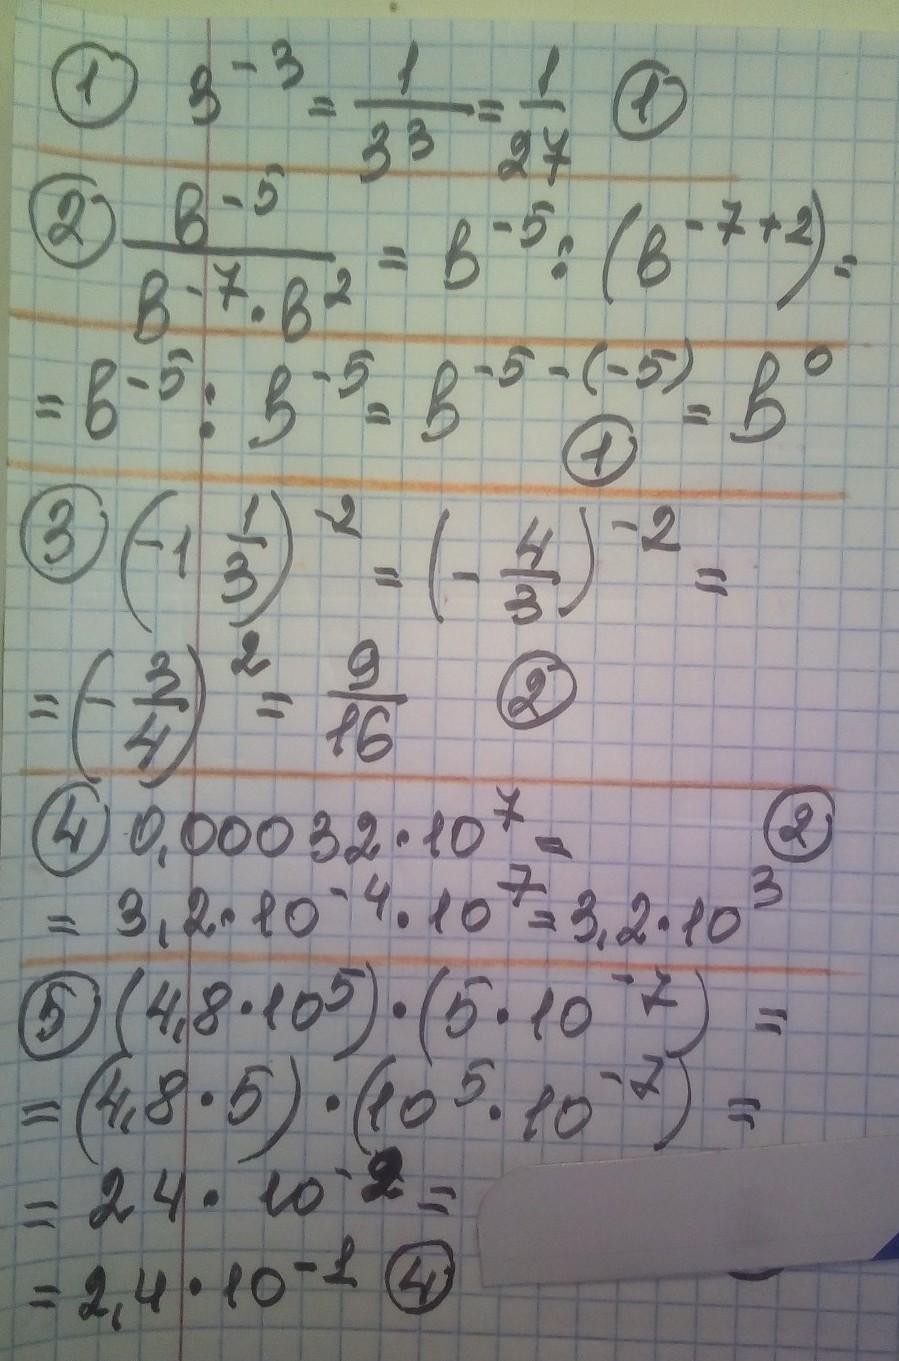 ① 3⁻³ = 1/3³ = 1/27 ①
② в⁻⁵/(в⁻⁷·в²) = в⁻⁵ : (в⁻⁷⁺²) =
= в⁻⁵ : в⁻⁵ = в⁻⁵⁻⁽⁻⁵⁾ = в⁰
①
③ (-1 1/3)⁻² = (-4/3)⁻² =
= (-3/4)² = 9/16 ②
④ 0,00032·10⁷ = ②
= 3,2·10⁻⁴·10⁷ = 3,2·10³
⑤ (4,8·10⁵)·(5·10⁻⁷) =
= (4,8·5)·(10⁵·10⁻⁷) =
= 24·10⁻² =
= 2,4·10⁻¹ ④